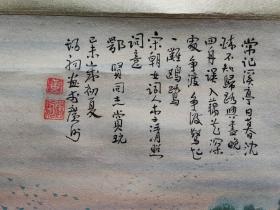 常记溪亭日暮沈
醉不知归路兴尽晚
回舟误入藕花深
处争渡争渡惊起
一滩鸥鹭
宋朝女词人李清照
词意
鄂贤同志赏玩
己未岁初夏